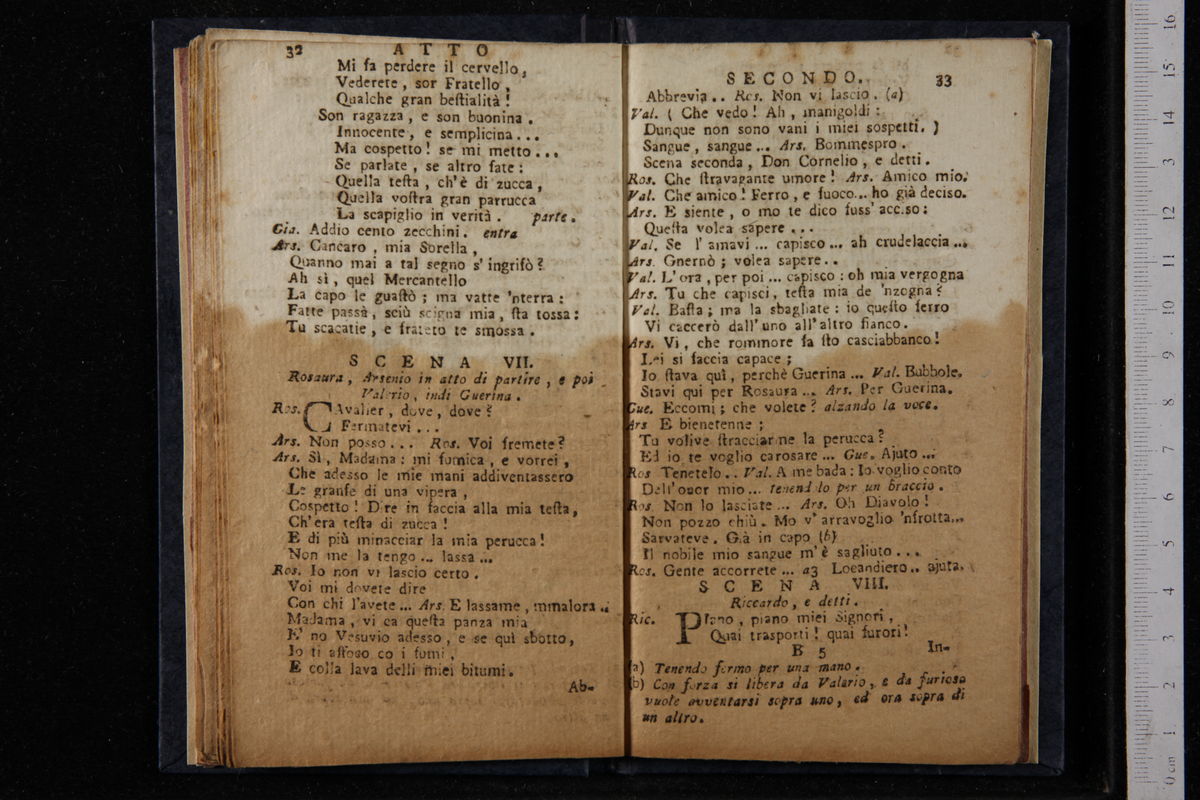 32 ATTO
Mi fa perdere il cervello,
Vederete, sor Fratello,
Qualche gran beſtialità!
Son ragazza, e son buonina.
Innocente, e semplicina...
Ma cospetto! se mi metto...
Se parlate, se altro fate:
Quella teſta, ch'è di zucca,
Quella voſtra gran parrucca
La scapiglio in verità. parte.
Gia. Addio cento zecchini. entra
Ars. Cancaro, mia Sorella,
Quanno mai a tal segno s' ingrifò?
Ah sì, quel Mercantello
La capo le guaſtò; ma vatte 'nterra:
Fatte passà, sciù scigna mia, ſta tossa:
Tu scacatie, e frateto te smossa.
SCENA VII.
Rosaura, Arsenio in atto di partire, e poi
Valerio, indi Guerina.
Ros. CAvalier, dove, dove?
Fermatevi...
Ars. Non posso... Ros. Voi fremete?
Ars. Sì, Madama: mi fumica, e vorrei,
Che adesso le mie mani addiventassero
Le granfe di una vipera,
Cospetto! Dire in faccia alla mia teſta,
Ch'era teſta di zucca!
E di più minacciar la mia perucca!
Non me la tengo... lassa...
Ros. Io non vi lascio certo.
Voi mi dovete dire
Con chi l'avete... Ars. E lassame, mmalora..
Madama, vi ca queſta panza mia
E' no Vesuvio adesso, e se quì sbotto,
Io ti affoco co i fumi,
E colla lava delli miei bitumi.
Ab-
SECONDO. 33
Abbrevia.. Ros. Non vi lascio. (a)
Val. ( Che vedo! Ah, manigoldi:
Dunque non sono vani i miei sospetti. )
Sangue, sangue... Ars. Bommespro.
Scena seconda, Don Cornelio, e detti.
Ros. Che ſtravagante umore! Ars. Amico mio.
Val. Che amico! Ferro, e fuoco... ho già deciso.
Ars. E siente, o mo te dico fuss' acciso:
Queſta volea sapere...
Val. Se l' amavi... capisco... ah crudelaccia...
Ars. Gnernò; volea sapere..
Val. L'ora, per poi... capisco: oh mia vergogna
Ars. Tu che capisci, teſta mia de 'nzogna?
Val. Baſta; ma la sbagliate: io queſto ferro
Vi caccerò dall'uno all'altro fianco.
Ars. Vi, che rommore fa ſto casciabbanco!
Lei si faccia capace;
Io ſtava quì, perchè Guerina... Val. Bubbole.
Stavi qui per Rosaura... Ars. Per Guerina.
Gue. Eccomi; che volete? alzando la voce.
Ars E bienetenne;
Tu volive ſtracciarne la perucca?
Ed io te voglio carosare... Gue. Ajuto...
Ros Tenetelo.. Val. A me bada: Io voglio conto
Dell'onor mio... tenendolo per un braccio.
Ros. Non lo lasciate... Ars. Oh Diavolo!
Non pozzo chiù. Mo v'arravoglio 'nfrotta...
Sarvateve. Già in capo (b)
Il nobile mio sangue m'è sagliuto...
Ros. Gente accorrete... a3 Locandiero.. ajuta.
SCENA VIII.
Riccardo, e detti.
Ric. PIano, piano miei Signori,
Quai trasporti! quai furori!
B 5 In-
(a) Tenendo fermo per una mano.
(b) Con forza si libera da Valerio, e da furioso
vuole avventarsi sopra uno, ed ora sopra di
un altro.